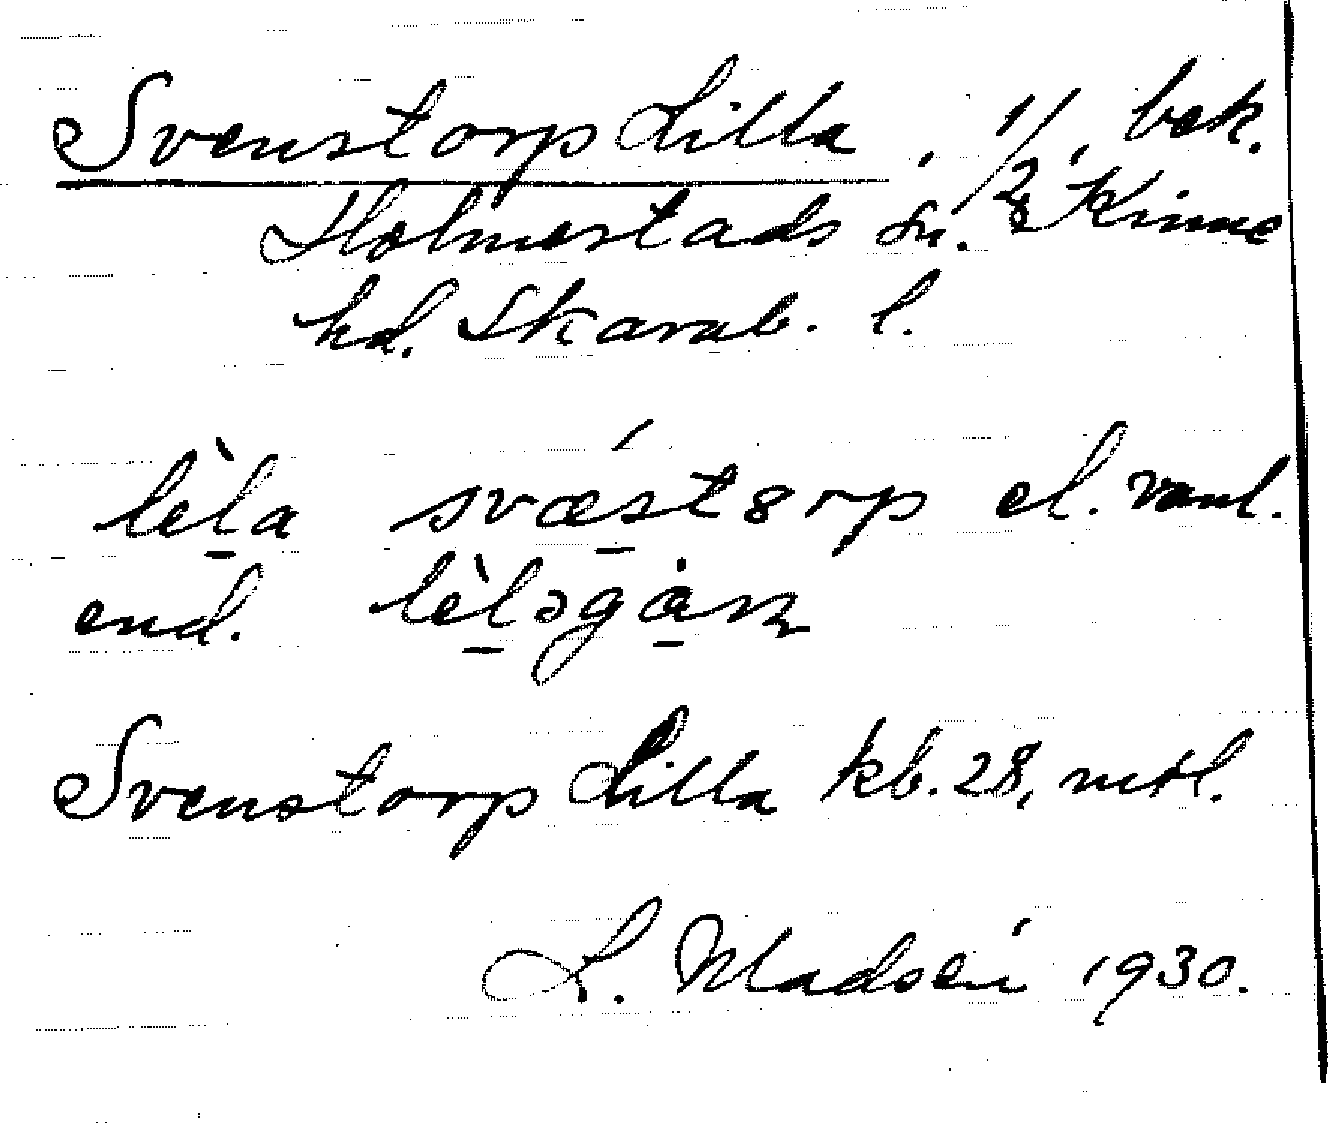 Svenstorp Lilla, 1/2, bek.
Holmestads sn. Kinne
hd. Skarab. l.
lèla svæ´stȣrp el. vanl.
end. lèləgȧrn
Svenstorp Lilla kb. 28, mtl.
L. Madsén 1930.